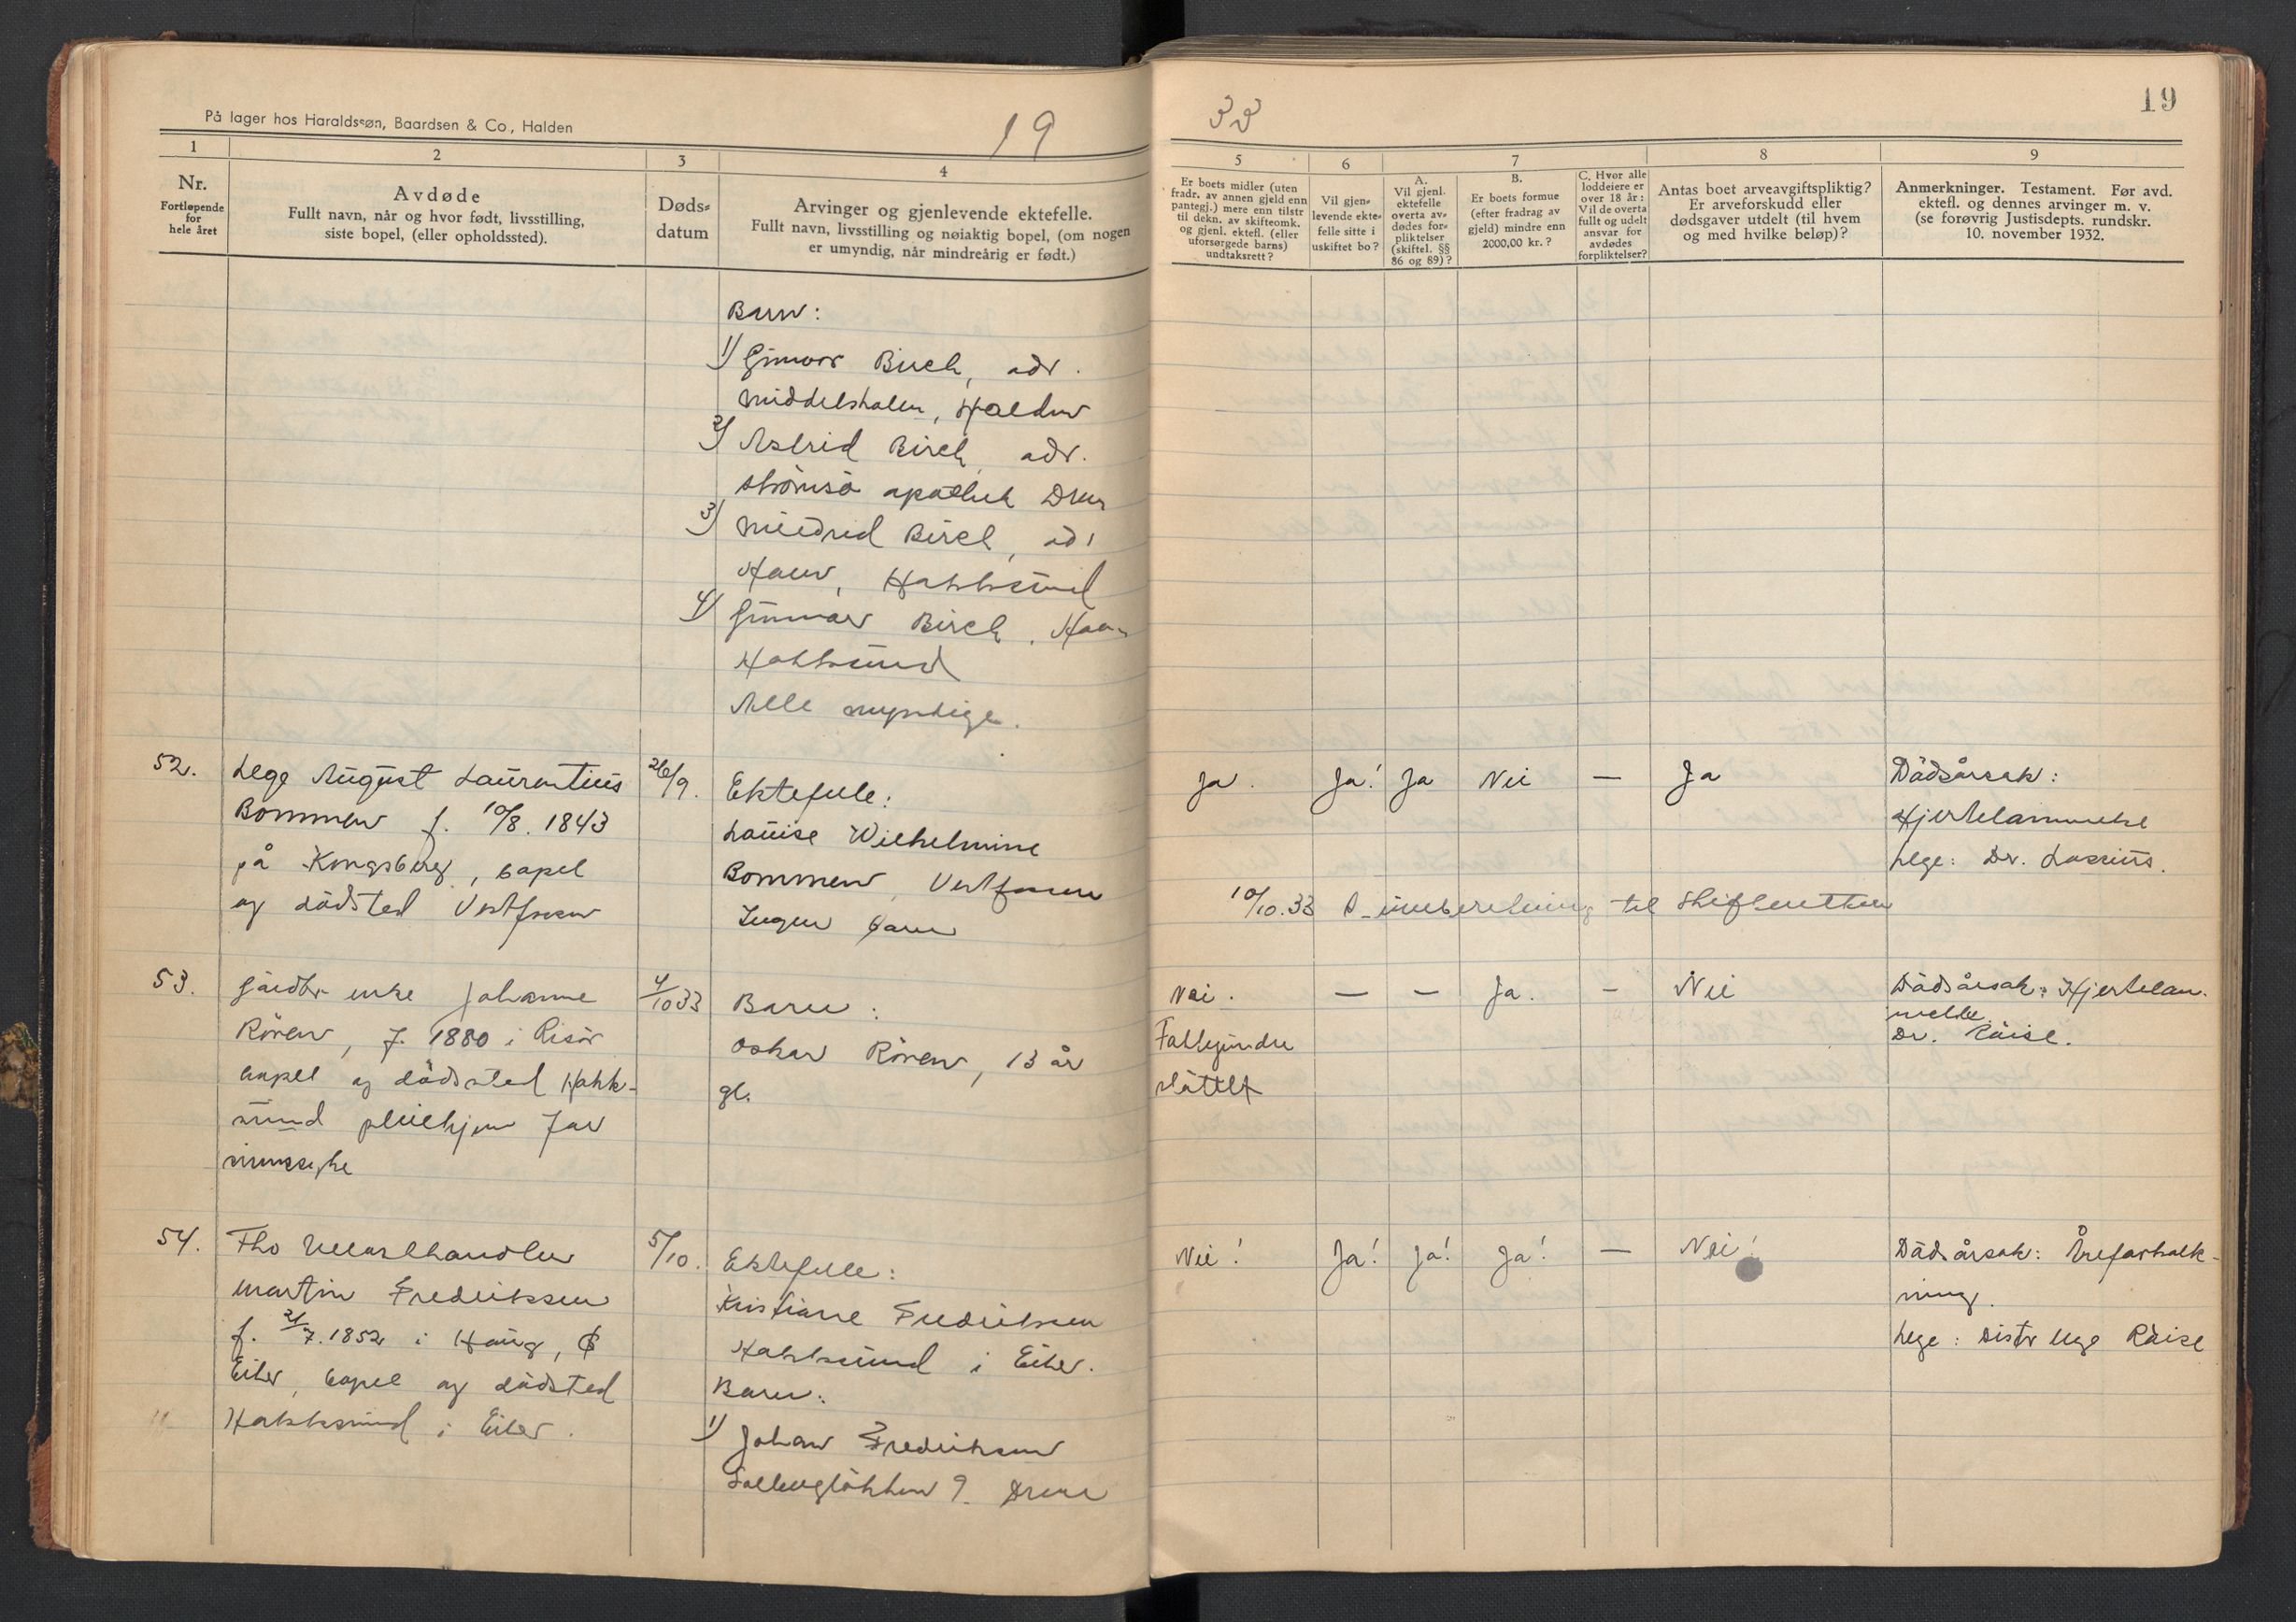 På lager hos Haraldssøn, Baardsen & Co., Halden
19
1
2
3
4
Nr.
Fortløpende
for
hele året
Avdøde
Fullt navn, når og hvor født, livsstilling,
siste bopel, (eller opholdssted).
Døds-
datum
Arvinger og gjenlevende ektefelle.
Fullt navn, livsstilling og nøiaktig bopel, (om nogen
er umyndig, når mindreårig er født.)
Barn:
1) Gunvor Birch, adr.
Middelskolen, Halden
2) Astrid Birch, adr.
Strömsö apothek Drm
3) Mildred Birch, adr
Haun, Hokksund
4) Gunnar Birch, Haun
Hokksund
Alle myndige.
52.
Lege August Laurentius
Bommen f. 10/8. 1843
på Kongsberg, bopel
og dödsted Vestfossen
26/9.
Ektefelle:
Louise Wilhelmine
Bommen, Vestfossen
Ingen barn
53.
Gårdbr enke Johanne
Rören, f. 1880 i Risör
bopel og dödsted Hokk-
sund pleiehjem for
sinnssyke
4/10 33
Barn:
Oskar Rören, 13 år
gl.
54.
Fho
Martin Fredriksen
f. 21/7. 1852 i Haug, Ö
Eiker, bopel og dödsted
Hokksund i Eiker.
5/10.
Ektefelle:
Kristiane Fredriksen
Hokksund i Eiker.
Barn:
1) Johan Fredriksen
Solbergløkken 9. Drm
33
19
5
6
7
8
9
Er boets midler (uten
fradr. av annen gjeld enn
pantegj.) mere enn tilstr
til dekn. av skifteomk.
og gjenl. ektefl. (eller
uforsørgede barns)
undtaksrett?
Vil gjen-
levende ekte-
felle sitte i
uskiftet bo?
A.
Vil gjenl.
ektefelle
overta av-
dødes for-
pliktelser
(skiftel. §§
86 og 89)?
B.
Er boets formue
(efter fradrag av
gjeld) mindre enn
2000,00 kr.?
C. Hvor alle
loddeiere er
over 18 år:
Vil de overta
fullt og udelt
ansvar for
avdødes
forpliktelser?
Antas boet arveavgiftspliktig?
Er arveforskudd eller
dødsgaver utdelt (til hvem
og med hvilke beløp)?
Anmerkninger. Testament. Før avd.
ektefl. og dennes arvinger m. v.
(se forøvrig Justisdepts. rundskr.
10. november 1932.
ja. Ja! Ja Nei — Ja
Dödsårsak:
Hjertelammelse
Lege: Dr. Lassius.
10/10.33 D-innberetning til skifteretten
Nei. — — Ja. — Nei
Fattigunder
støttet
Dödsårsak: Hjertelam-
melse.
Dr. Råise.
Nei! Ja! ja! Ja! — Nei!
Dödsårsak: Åreforkalk-
ning.
Lege: Distr lege Råise